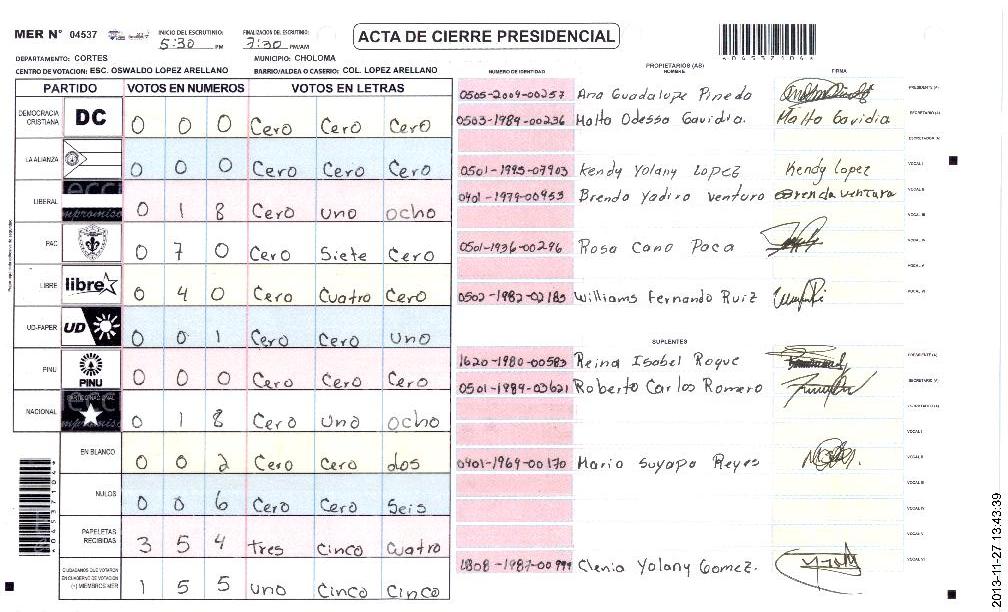 MER N° 04537
INICIO DEL ESCRUTINIO: 5:30 PM
FINALIZACION DEL ESCRUTINIO: 7:30 PM/AM
ACTA DE CIERRE PRESIDENCIAL
DEPARTAMENTO: CORTES MUNICIPIO: CHOLOMA
CENTRO DE VOTACION: ESC. OSWALDO LOPEZ ARELLANO BARRIO/ALDEA O CASERIO: COL. LOPEZ ARELLANO
PARTIDO VOTOS EN NUMEROS VOTOS EN LETRAS
DEMOCRACIA CRISTIANA DC 0 0 0 Cero Cero Cero
LA ALIANZA 0 0 0 Cero Cero Cero
LIBERAL 0 1 8 Cero uno ocho
PAC 0 7 0 Cero Siete Cero
LIBRE libre 0 4 0 Cero Cuatro Cero
UD-FAPER UD 0 0 1 Cero Cero uno
PINU PINU 0 0 0 Cero Cero Cero
NACIONAL 0 1 8 Cero uno ocho
EN BLANCO 0 0 2 Cero Cero dos
NULOS 0 0 6 Cero Cero Seis
PAPELETAS RECIBIDAS 3 5 4 tres Cinco Cuatro
CIUDADANOS QUE VOTARON EN CUADERNO DE VOTACION (+) MIEMBROS MER 1 5 5 uno Cinco Cinco
PROPIETARIOS (AS)
NUMERO DE IDENTIDAD NOMBRE FIRMA
0505-2004-00257 Ana Guadalupe Pineda PRESIDENTE (A)
0503-1984-00236 Malta Odessa Gavidia. Malta Gavidia SECRETARIO (A)
ESCRUTADOR (A)
0501-1995-07903 Kendy Yolany Lopez Kendy Lopez VOCAL I
0401-1979-00953 Brenda Yadira ventura Brenda ventura VOCAL II
VOCAL III
0501-1936-00296 Rosa Cano Paca VOCAL IV
VOCAL V
0502-1982-02185 Williams Fernando Ruiz VOCAL VI
SUPLENTES
1620-1980-00583 Reina Isabel Roque PRESIDENTE (A)
0501-1989-03621 Roberto Carlos Romero SECRETARIO (A)
ESCRUTADOR (A)
VOCAL I
0401-1969-00170 Maria Suyapa Reyes VOCAL II
VOCAL III
VOCAL IV
VOCAL V
1808-1987-00999 Clenia Yolany Gomez. VOCAL VI
2013-11-27 13:43:39